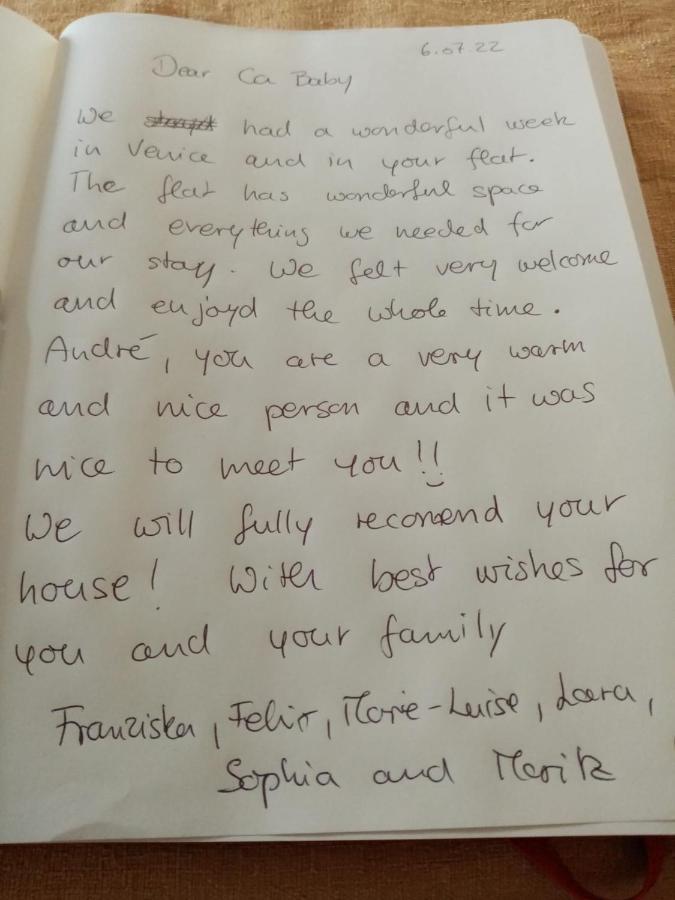 6.07.22
Dear Ca Baby
We had a wonderful week
in Venice and in your flat.
The flat has wonderful space
and everything we needed for
our stay. We felt very welcome
and enjoyd the whole time.
André, you are a very warm
and nice person and it was
nice to meet you!!
We will fully recomend your
house! With best wishes for
you and your family
Franziska, Felix, Marie-Luise, Lara,
Sophia and Moritz